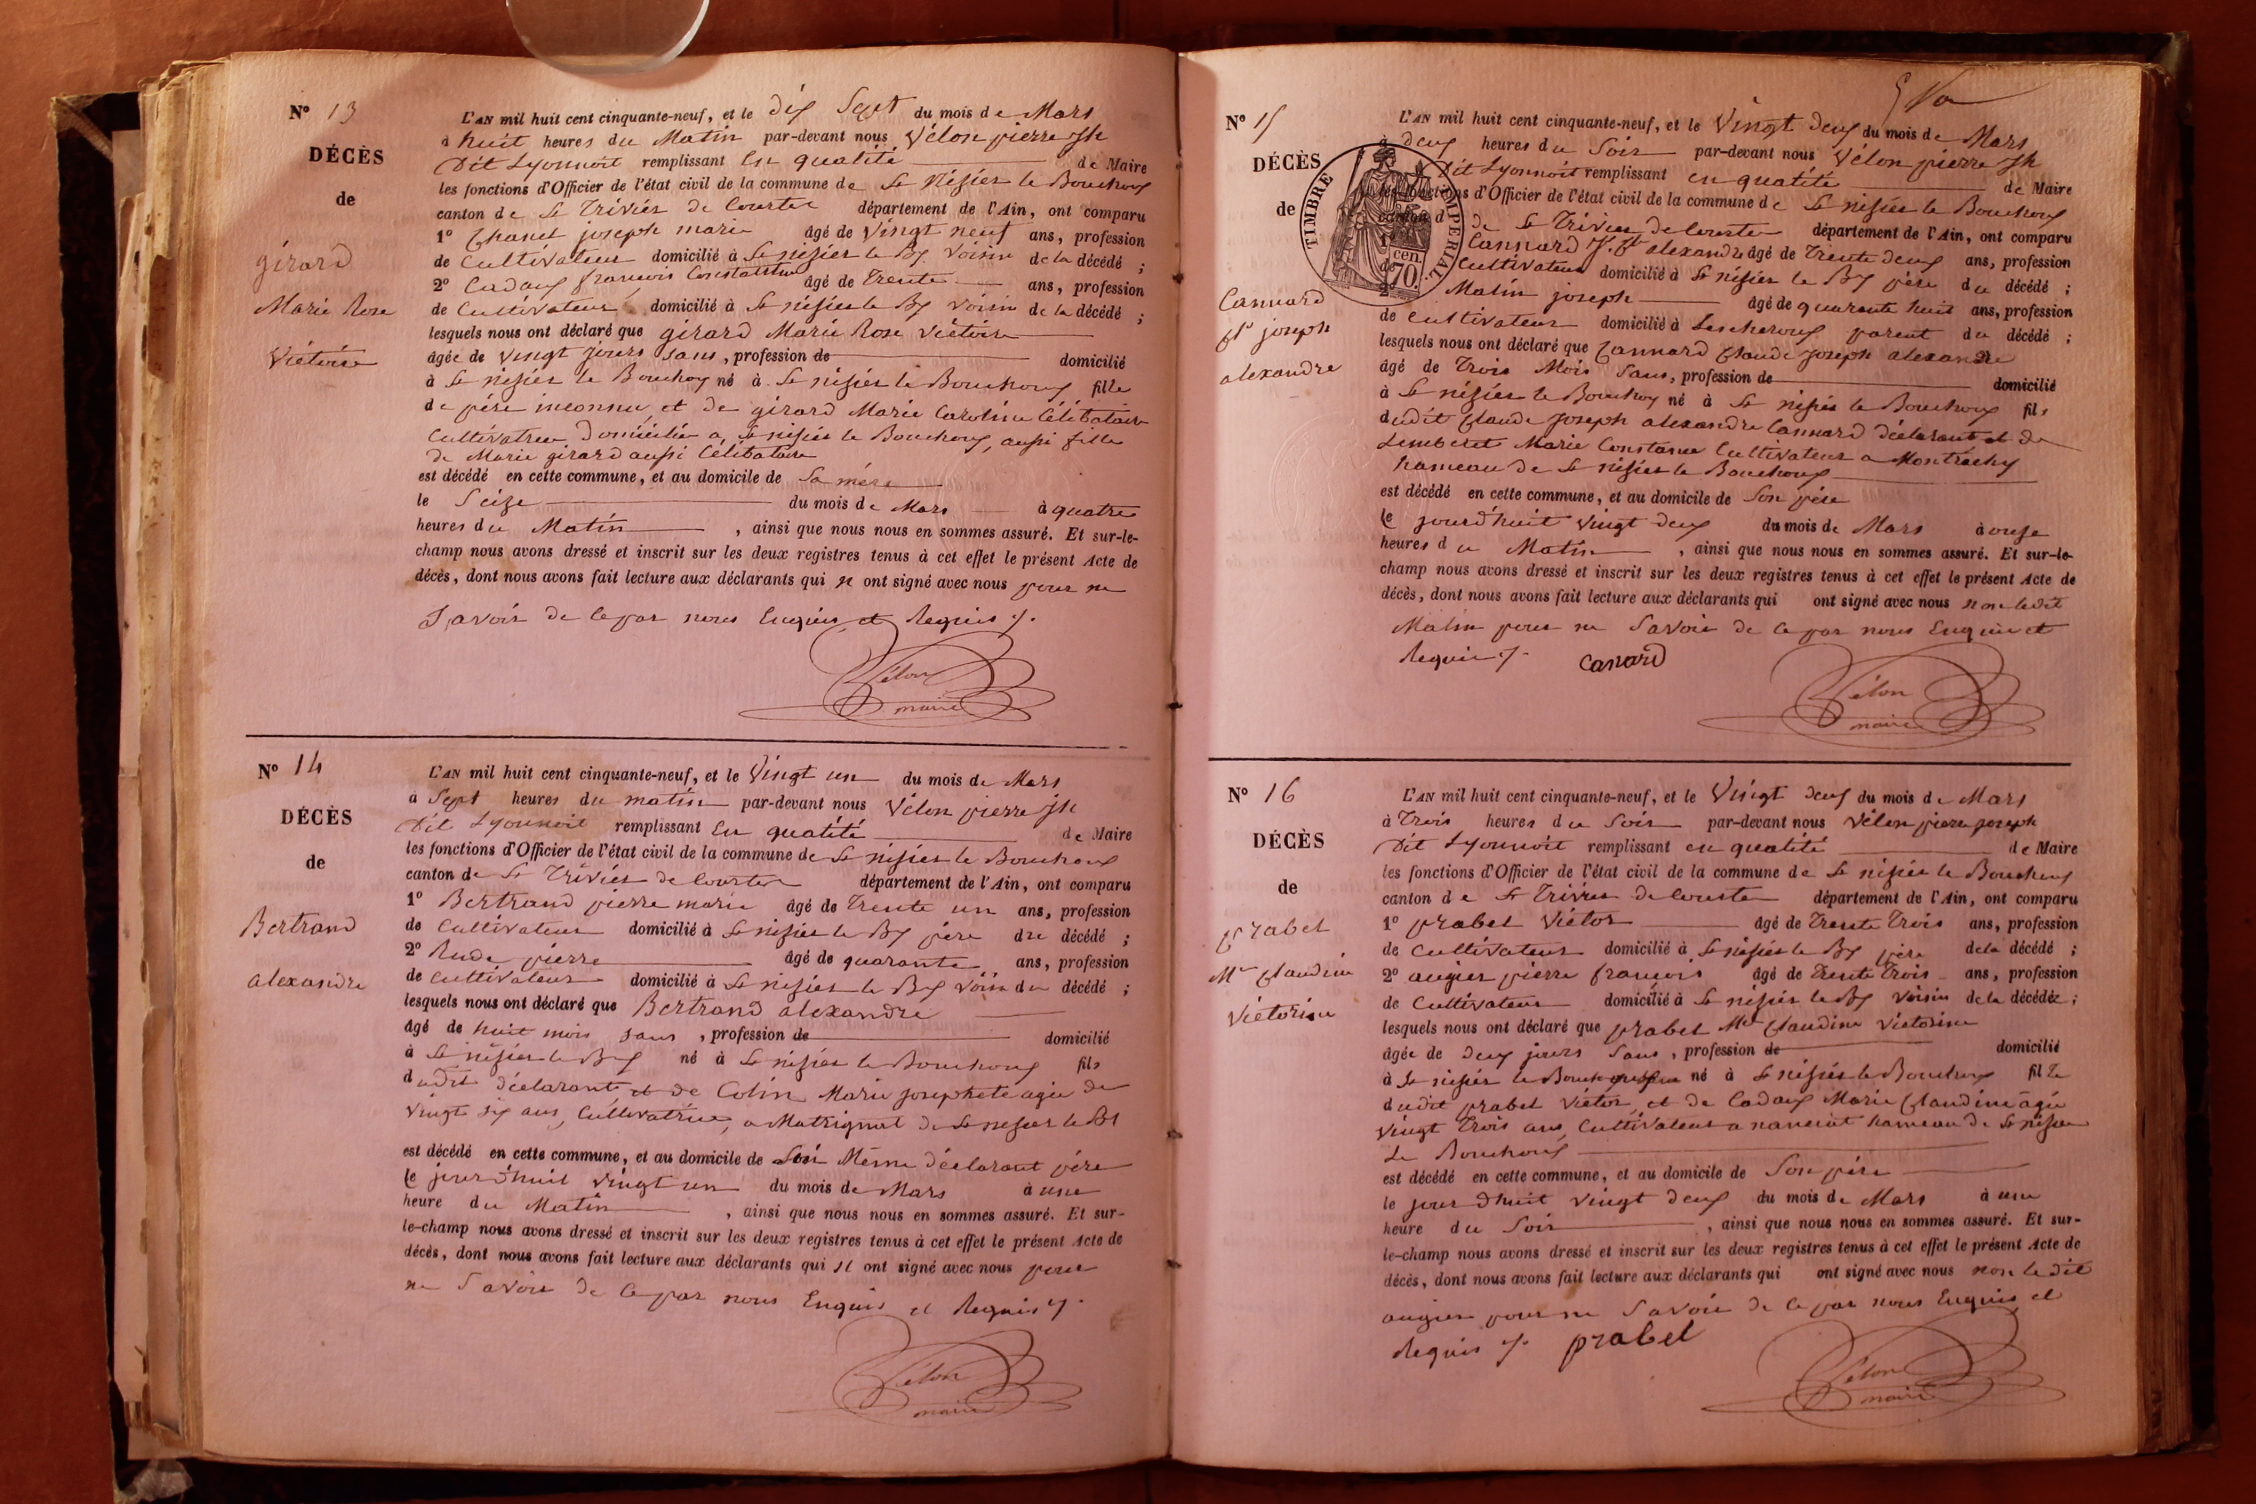 N° 13
DÉCÈS
de
girard
Marie Rose
Victoire
L'AN mil huit cent cinquante-neuf, et le dix Sept du mois de Mars
à huit heures du Matin par-devant nous Vélon pierre Jh
Dit Lyonnoit remplissant En qualité de Maire
les fonctions d'Officier de l'état civil de la commune de St Nisier le Bouchoux
canton de St Triviér de Courtes département de l'Ain, ont comparu
1° Chanel joseph marie âgé de Vingt neuf ans, profession
de Cultivateur domicilié à St nisier le Bx Voisin de la décédé ;
2° Cadoux françois Constantin âgé de Trente ans, profession
de Cultivateur domicilié à St nisier le Bx Voisin de la décédé ;
lesquels nous ont déclaré que girard Marie Rose Victoire
âgée de Vingt jours Sans, profession de domicilié
à St nisier le Bouchoux né à St nisier le Bouchoux fille
de pére inconnu et de girard Marie Caroline Célibataire
Cultivatrice Domiciliée à St nisier le Bouchoux, aussi fille
de Marie girard aussi Célibataire
est décédé en cette commune, et au domicile de Sa mére
le Seize du mois de Mars à quatre
heures du Matin , ainsi que nous nous en sommes assuré. Et sur-le-
champ nous avons dressé et inscrit sur les deux registres tenus à cet effet le présent Acte de
décès, dont nous avons fait lecture aux déclarants qui n ont signé avec nous pour ne
Savoir de ce par nous Enquis et Requis ./.
Vélon
maire
N° 14
DÉCÈS
de
Bertrand
alexandre
L'AN mil huit cent cinquante-neuf, et le Vingt un du mois de Mars
à Sept heures du matin par-devant nous Vélon pierre Jh
Dit Lyonnoit remplissant En qualité de Maire
les fonctions d'Officier de l'état civil de la commune de St nisier le Bouchoux
canton de St Triviér de Courtes département de l'Ain, ont comparu
1° Bertrand pierre marie âgé de Trente un ans, profession
de Cultivateur domicilié à St nisier le Bx pére du décédé ;
2° Rude pierre âgé de quarante ans, profession
de Cultivateur domicilié à St nisier le Bx Voisin du décédé ;
lesquels nous ont déclaré que Bertrand alexandre
âgé de huit mois sans , profession de domicilié
à St nisier le Bx né à St nisier le Bouchoux fils
dudit déclarant et de Colin Marie josephete agée de
Vingt six ans, Cultivatrice, a Matrignat de St nisier le Bx
est décédé en cette commune, et au domicile de Son Même déclarant pére
le jourd'huit Vingt un du mois de Mars à une
heure du Matin , ainsi que nous nous en sommes assuré. Et sur-
le-champ nous avons dressé et inscrit sur les deux registres tenus à cet effet le présent Acte de
décès, dont nous avons fait lecture aux déclarants qui n ont signé avec nous pour
ne Savoir de ce par nous Enquis et Requis ./.
Vélon
maire
N° 15
DÉCÈS
de
Cannard
Cl. joseph
alexandre
TIMBRE IMPERIAL.
70 cen.
L'AN mil huit cent cinquante-neuf, et le Vingt deux du mois de Mars
à deux heures du Soir par-devant nous Vélon pierre Jh
Dit Lyonnoit remplissant en qualité de Maire
les fonctions d'Officier de l'état civil de la commune de St nisier le Bouchoux
canton de St Triviér de Courtes département de l'Ain, ont comparu
1° Cannard alexandre âgé de Trente deux ans, profession
de Cultivateur domicilié à St nisier le Bx pére du décédé ;
2° Malin joseph âgé de quarante huit ans, profession
de Cultivateur domicilié à Lescheroux parent du décédé ;
lesquels nous ont déclaré que Cannard Claude joseph alexandre
âgé de Trois Mois Sans, profession de domicilié
à St nisier le Bouchoux né à St nisier le Bouchoux fils
dudit Claude joseph alexandre Cannard déclarant et de
Lemberet Marie Constance Cultivateur a Montrachy
hameau de St nisier le Bouchoux
est décédé en cette commune, et au domicile de Son pére
le jourd'huit Vingt deux du mois de Mars à onze
heures du Matin , ainsi que nous nous en sommes assuré. Et sur-le-
champ nous avons dressé et inscrit sur les deux registres tenus à cet effet le présent Acte de
décès, dont nous avons fait lecture aux déclarants qui ont signé avec nous non ledit
Malin pour ne Savoir de ce par nous Enquis et
Requis ./. Canard
Vélon
maire
N° 16
DÉCÈS
de
prabel
Mie Claudine
Victorine
L'AN mil huit cent cinquante-neuf, et le Vingt deux du mois de Mars
à Trois heures du Soir par-devant nous Vélon pierre joseph
Dit Lyonnoit remplissant en qualité de Maire
les fonctions d'Officier de l'état civil de la commune de St nisier le Bouchoux
canton de St Triviér de Courtes département de l'Ain, ont comparu
1° prabel Victor âgé de Trente Trois ans, profession
de Cultivateur domicilié à St nisier le Bx pére de la décédé ;
2° augier pierre françois âgé de Trente Trois ans, profession
de Cultivateur domicilié à St nisier le Bx Voisin de la décédée ;
lesquels nous ont déclaré que prabel Mie Claudine Victorine
âgée de deux jours Sans , profession de domicilié
à St nisier le Bouchoux né à St nisier le Bouchoux fille
dudit prabel Victor et de Cadoux Marie Claudine agée
Vingt Trois ans, Cultivateur a nanciat hameau de St nisier
Le Bouchoux
est décédé en cette commune, et au domicile de Son pére
le jourd'huit Vingt deux du mois de Mars à une
heure du Soir , ainsi que nous nous en sommes assuré. Et sur-
le-champ nous avons dressé et inscrit sur les deux registres tenus à cet effet le présent Acte de
décès, dont nous avons fait lecture aux déclarants qui ont signé avec nous non ledit
augier pour ne Savoir de ce par nous Enquis et
Requis ./. prabel
Vélon
maire